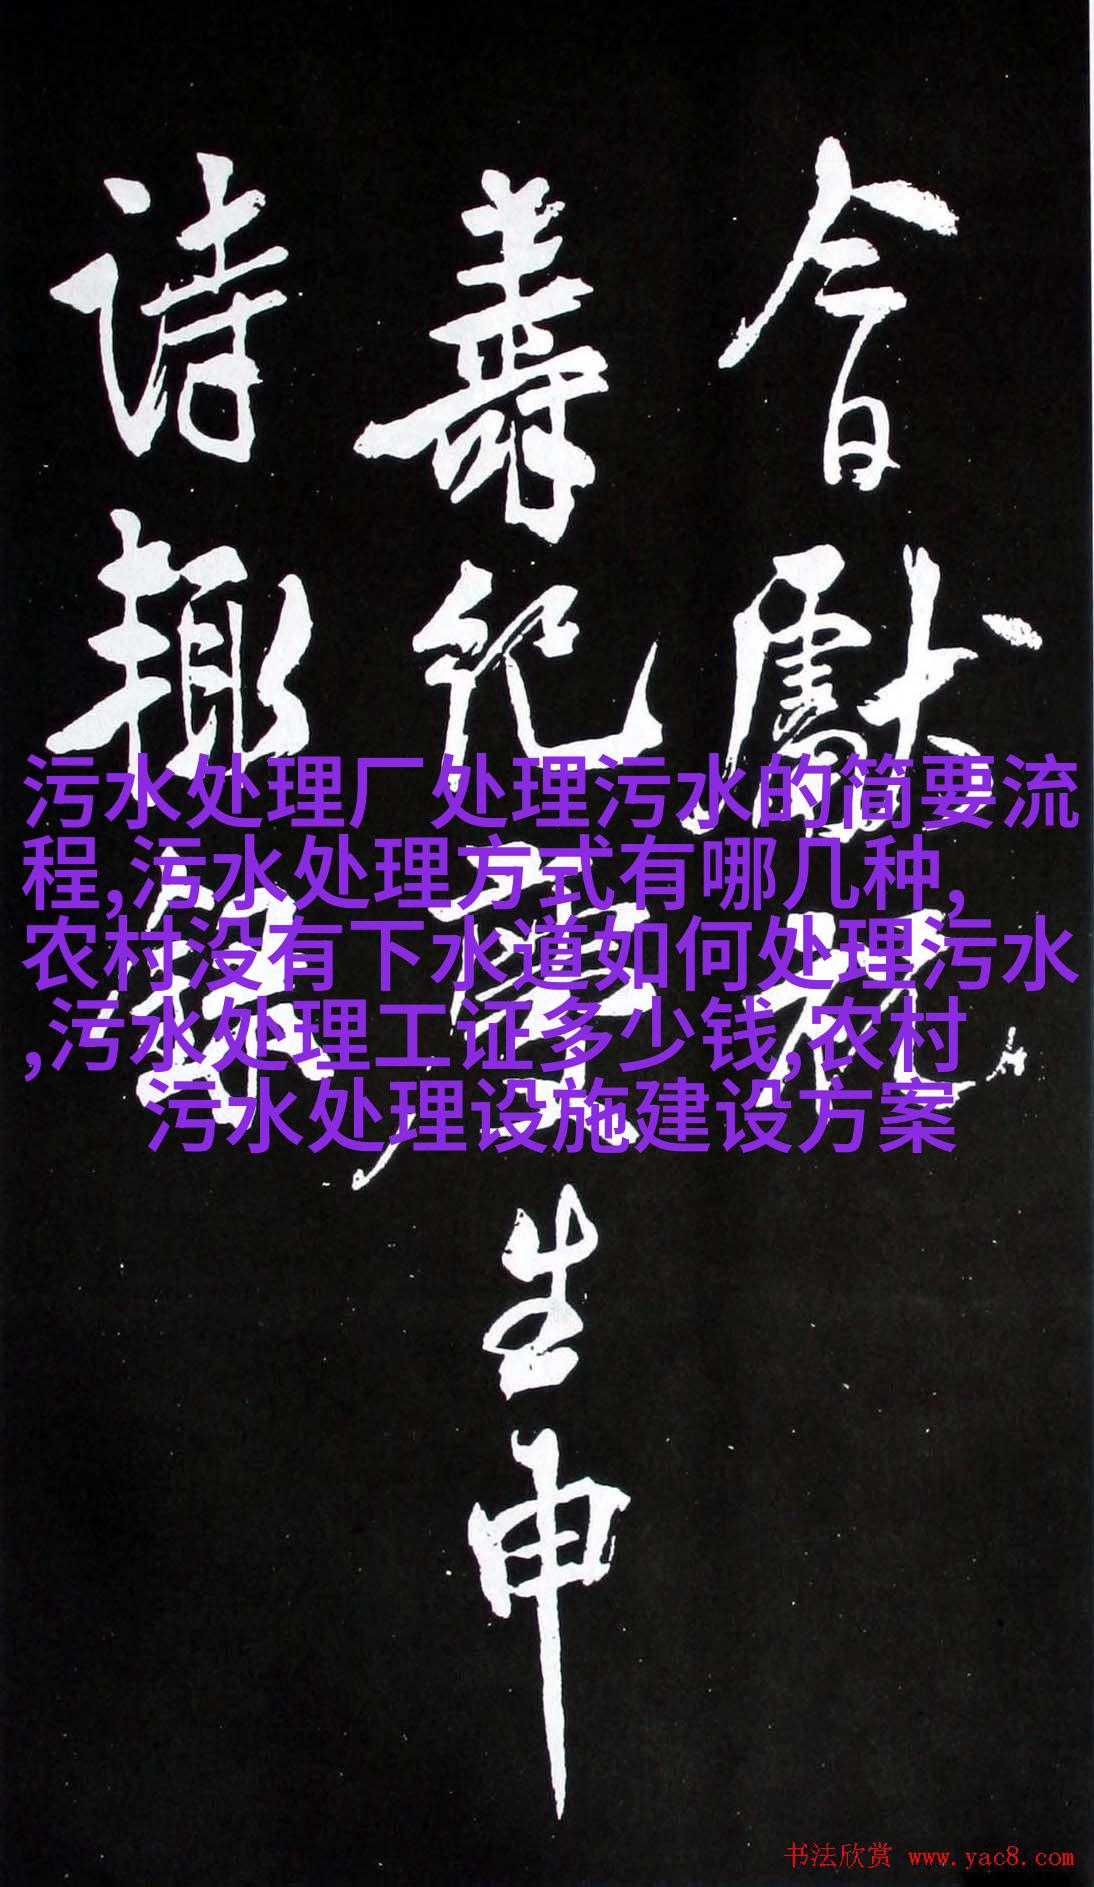 今日獻祝
壽紀
生申
詩趣
污水处理厂处理污水的简要流
程,污水处理方式有哪几种,
农村没有下水道如何处理污水
,污水处理工证多少钱,农村
污水处理设施建设方案
书法欣赏 www.yac8.com